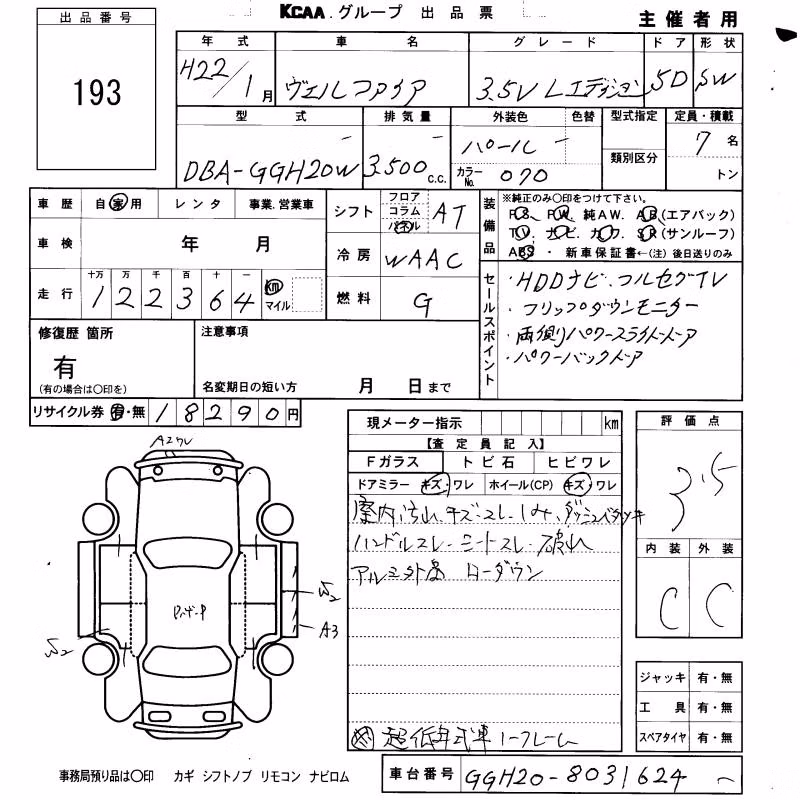 KCAA.グループ 出品票
主催者用
出品番号
193
年式 車名 グレード ドア 形状
H22/1月 ヴェルファイア 3.5V Lエディション 5D SW
型式 排気量 外装色 色替 型式指定 定員・積載
DBA-GGH20W 3.500c.c. パール 7名
カラーNo. 070 類別区分 トン
車歴 自家用 レンタ 事業.営業車
車検 年 月
走行 十万 万 千 百 十 一
122364 km マイル
シフト フロア コラム パネル AT
冷房 WAAC
燃料 G
装備品 ※純正のみ○印をつけて下さい。
P.S、P.W、純AW、A.B(エアバック)
T.V、ナビ、カワ、S.R(サンルーフ)
ABS・新車保証書←(注)後日送りのみ
セールスポイント
・HDDナビ、フルセグTV
・フリップダウンモニター
・両側パワースライドドア
・パワーバックドア
修復歴 箇所 注意事項
有
(有の場合は○印を) 名変期日の短い方 月 日まで
リサイクル券 有・無 18290円
現メーター指示 km
【査定員記入】
Fガラス トビ石 ヒビワレ
ドアミラー キズ・ワレ ホイール(CP) キズ・ワレ
室内汚れ、キズ・スレ
ハンドルスレ・シートスレ・破れ
アルミ外品 ローダウン
超低年式車
評価点
3.5
内装 外装
C C
A2ワレ
A3
ジャッキ 有・無
工具 有・無
スペアタイヤ 有・無
事務局預り品は○印 カギ シフトノブ リモコン ナビロム
車台番号 GGH20-8031624